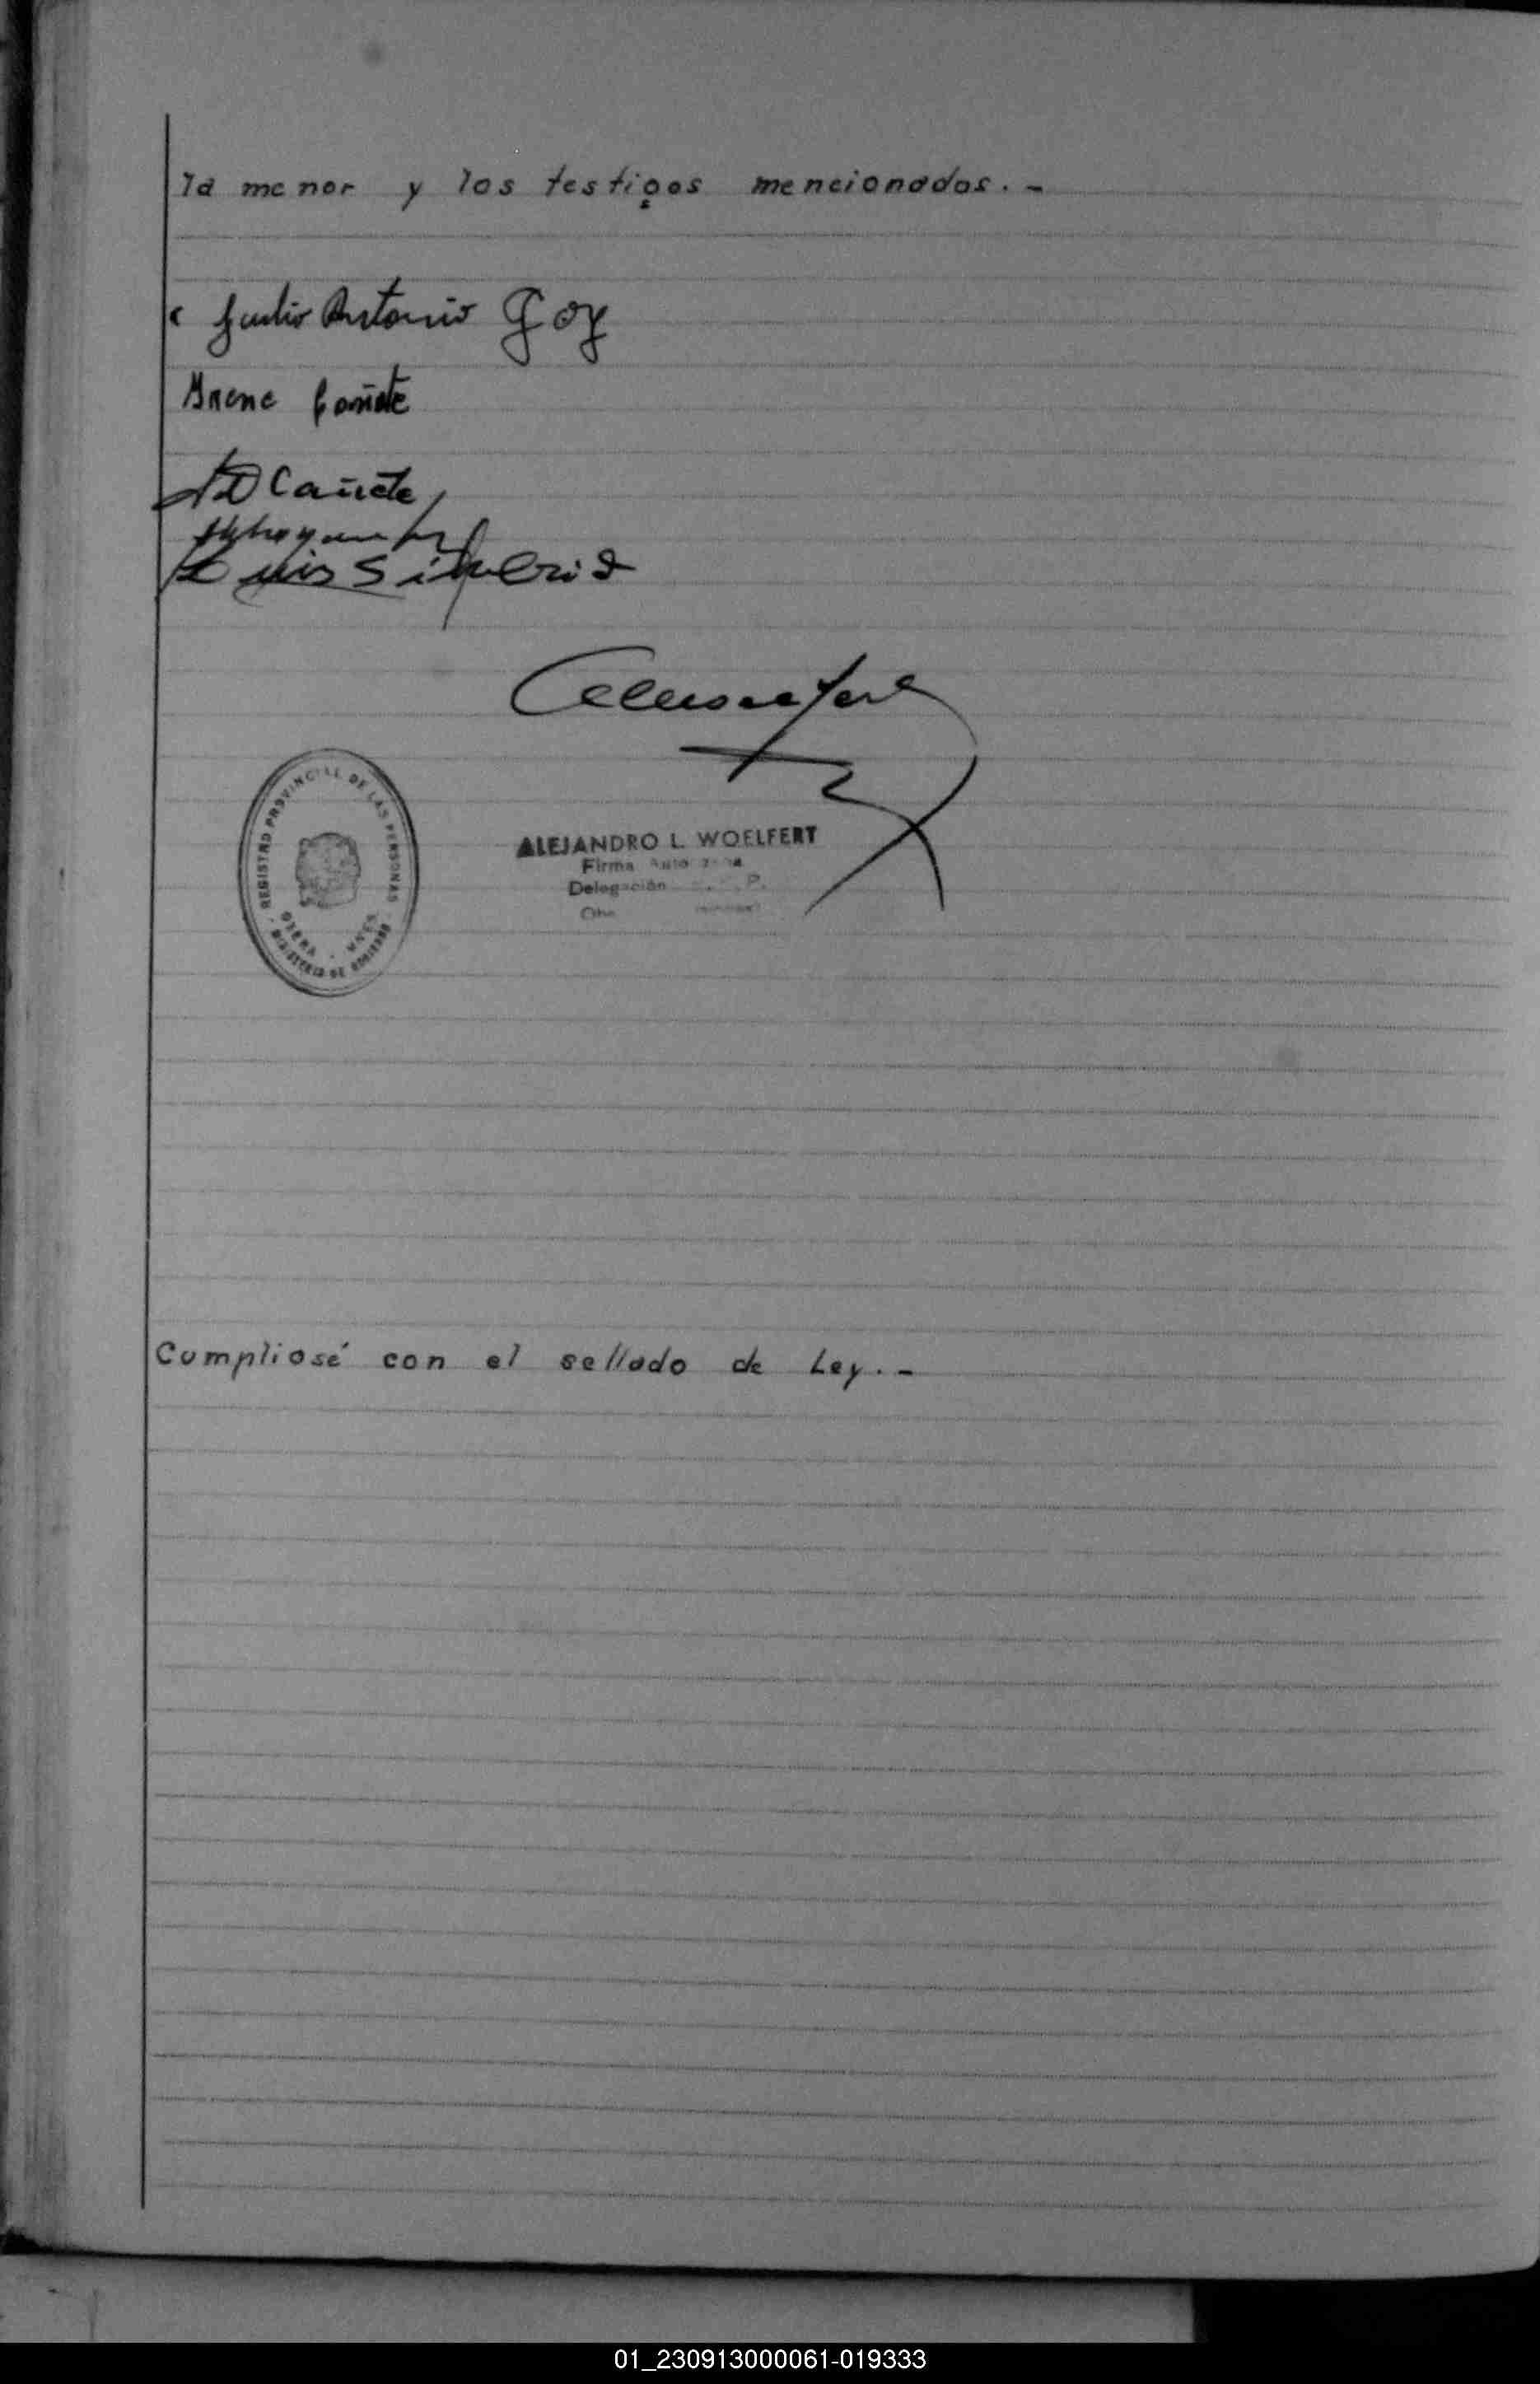 la menor y los testigos mencionados.-
Julio Antonio Goy
Irene Cañete
Cañete
Luis Silverio
REGISTRO PROVINCIAL DE LAS PERSONAS
OBERA - MNES.
MINISTERIO DE GOBIERNO
ALEJANDRO L. WOELFERT
Firma Autorizada
Delegación
Cumpliosé con el sellado de Ley.-
01_230913000061-019333